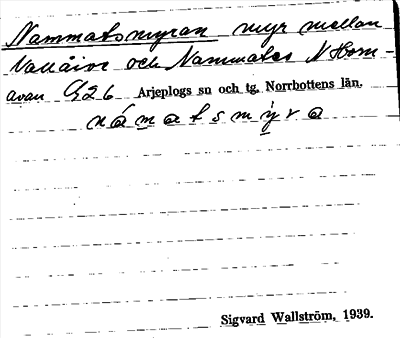 Nammatsmyran myr mellan
Vallåive och Nammates N Horn-
avan G26 Arjeplogs sn och tg. Norrbottens län.
námatsmýra
Sigvard Wallström, 1939.